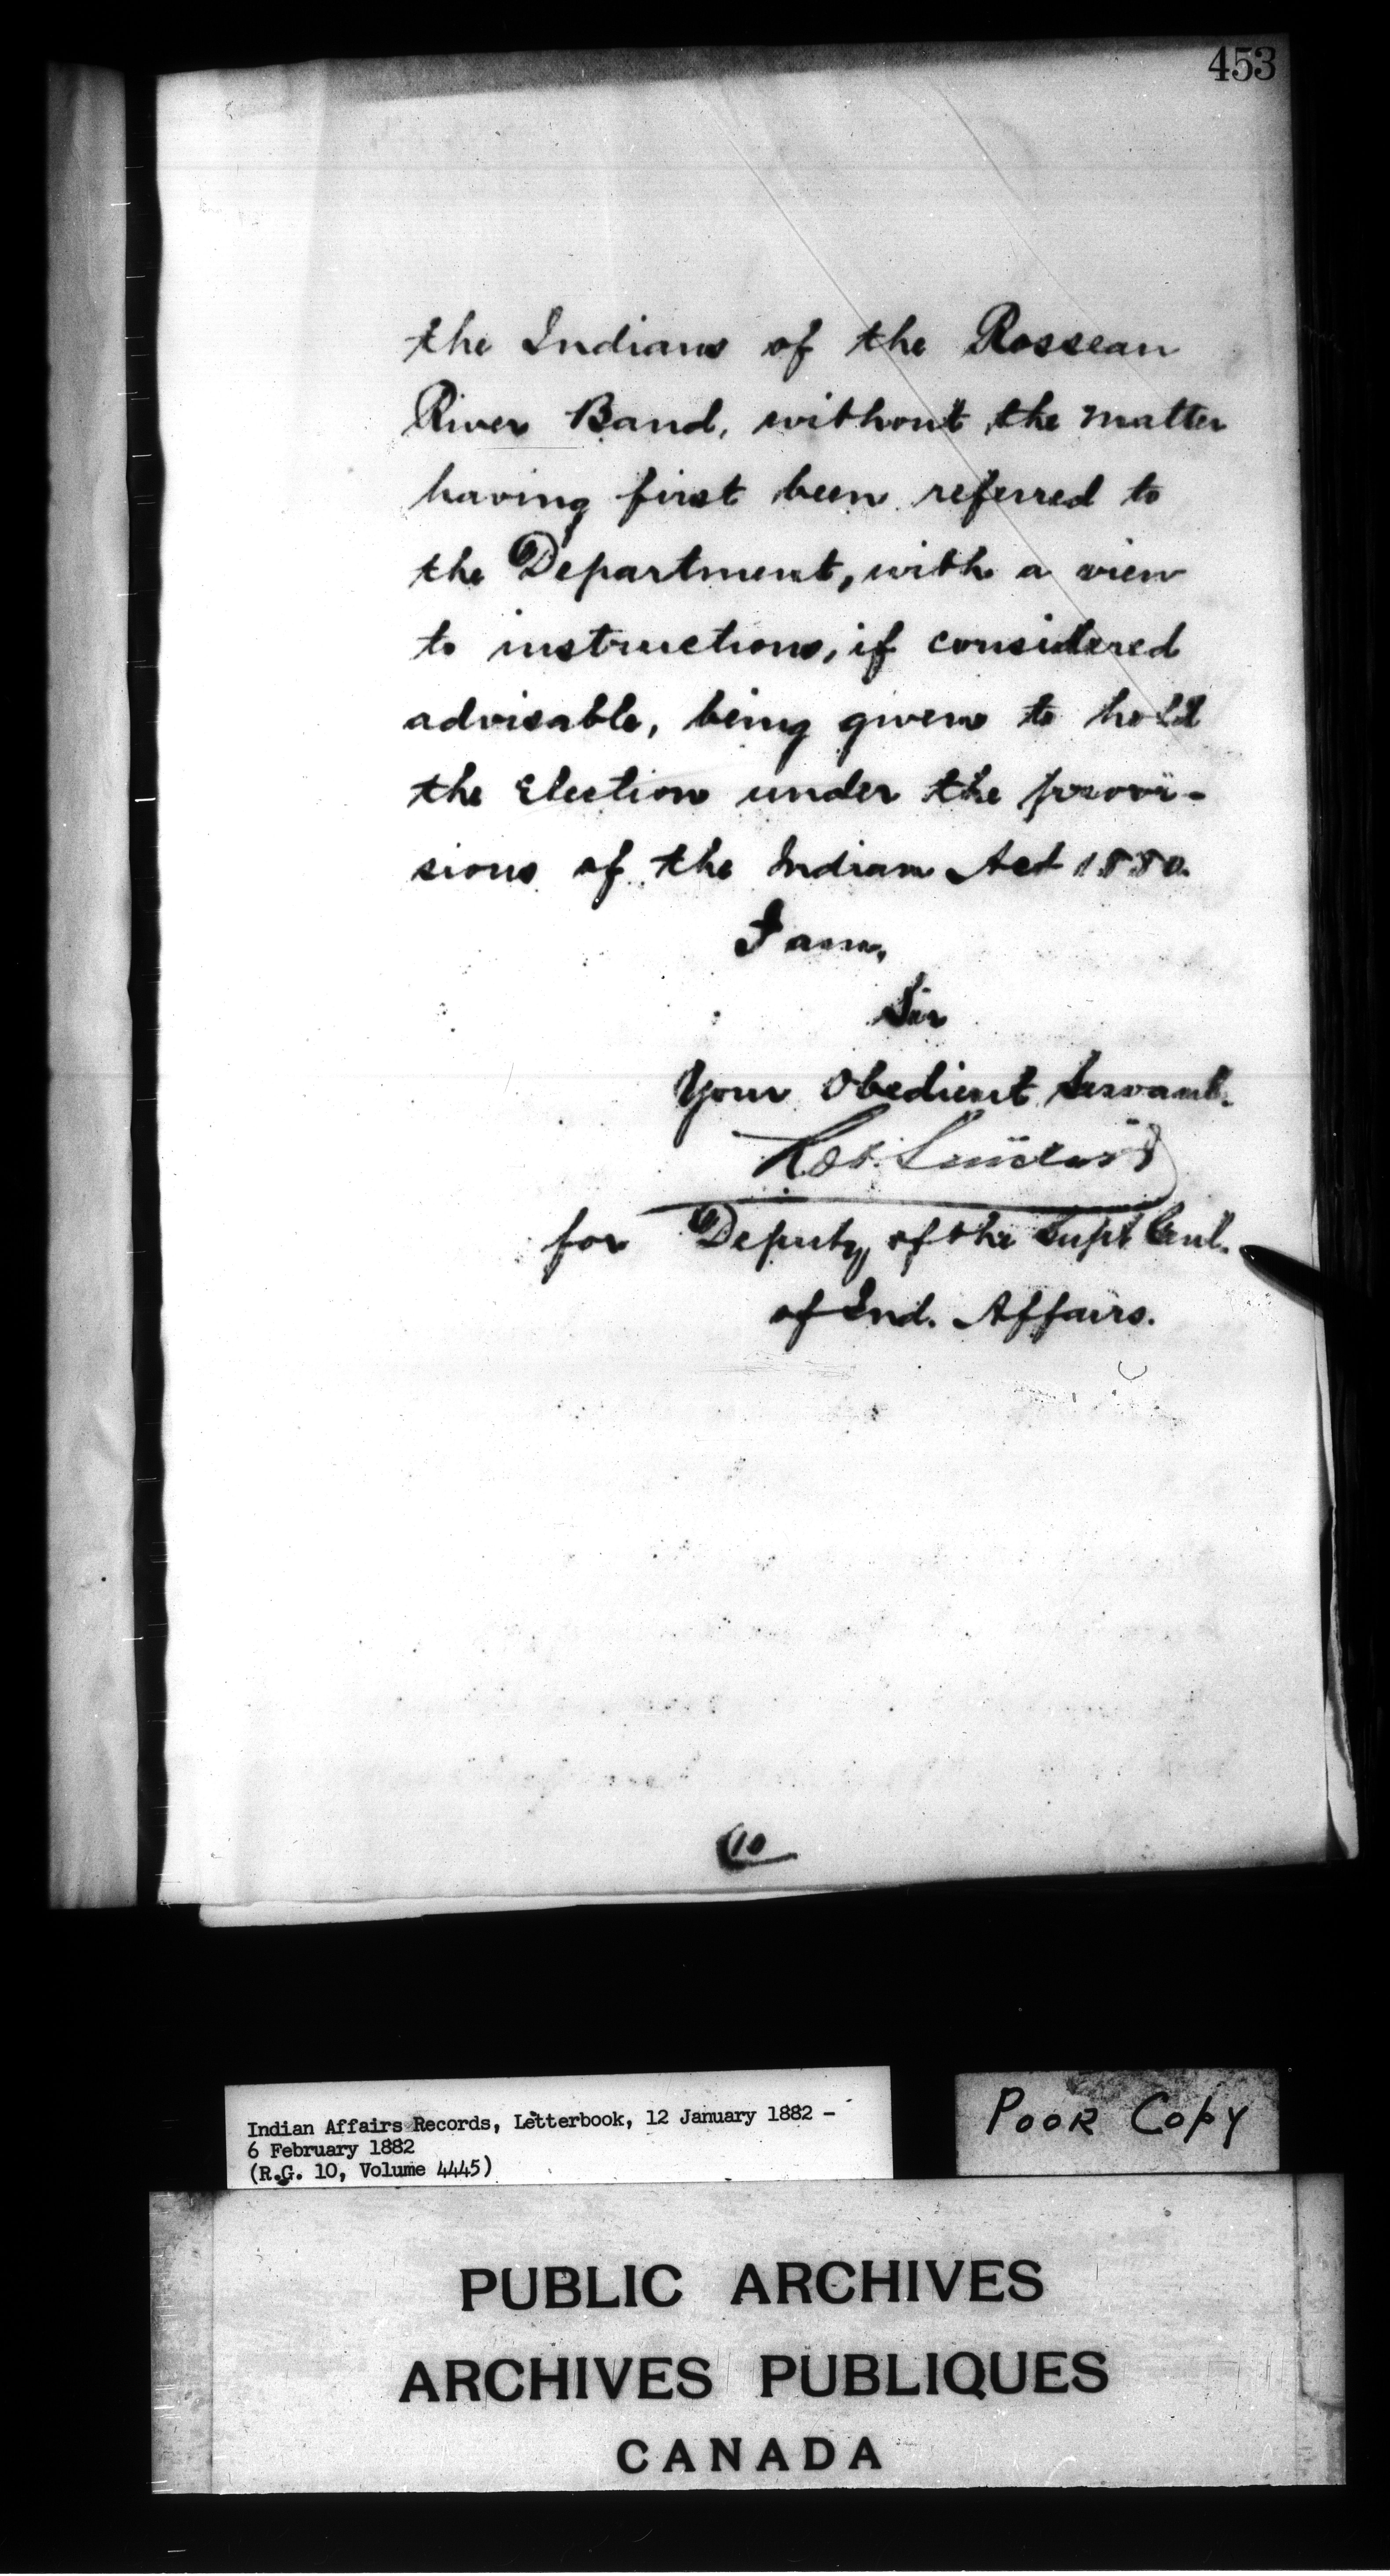 453
the Indians of the Rossean
River Band, without the matter
having first been referred to
the Department, with a view
to instructions, if considered
advisable, being given to hold
the Election under the provi-
sions of the Indian Act 1880.
I am,
Sir
Your Obedient Servant.
Rob. Sinclair
for Deputy of the Supt Genl.
of Ind. Affairs.
10
Indian Affairs Records, Letterbook, 12 January 1882 -
6 February 1882
(R.G. 10, Volume 4445)
POOR COPY
PUBLIC ARCHIVES
ARCHIVES PUBLIQUES
CANADA